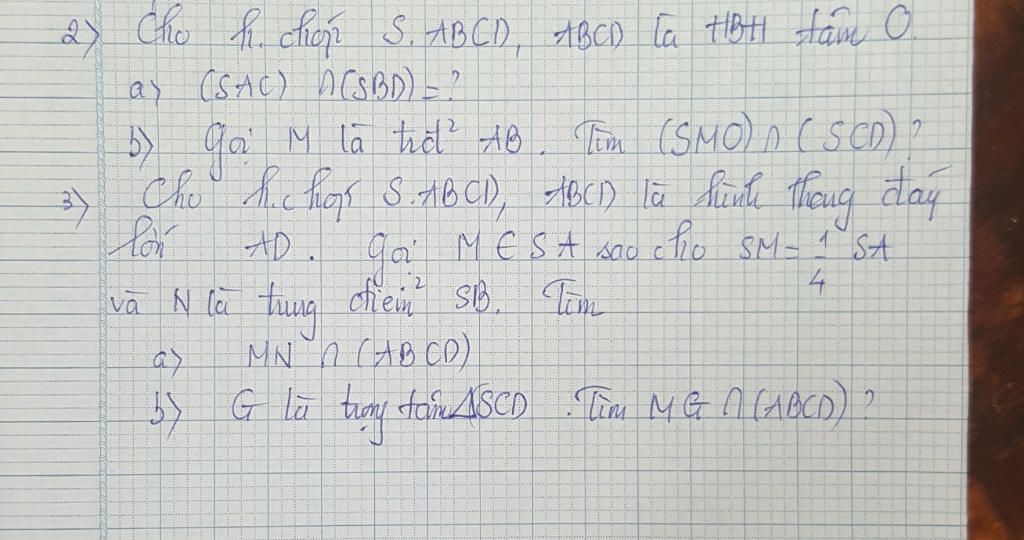 2) Cho h.chóp S.ABCD, ABCD là HBH tâm O.
a) (SAC) ∩ (SBD) = ?
b) Gọi M là trđ² AB. Tìm (SMO) ∩ (SCD)?
3) Cho h.chóp S.ABCD, ABCD là hình thang đáy
lớn AD. Gọi M ∈ SA sao cho SM = 1/4 SA
và N là trung điểm² SB. Tìm
a) MN ∩ (ABCD)
b) G là trọng tâm ΔSCD. Tìm MG ∩ (ABCD)?